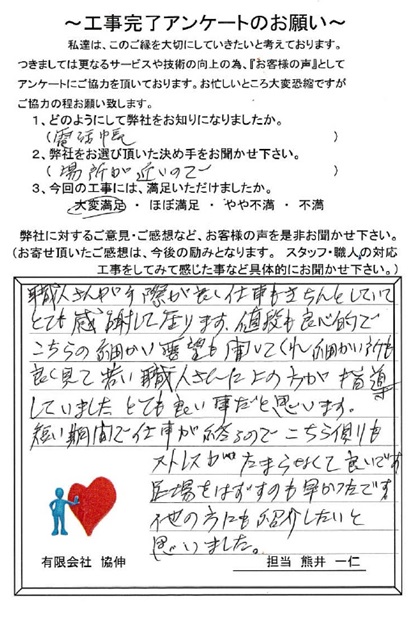 ～工事完了アンケートのお願い～
私達は、このご縁を大切にしていきたいと考えております。
つきましては更なるサービスや技術の向上の為、『お客様の声』として
アンケートにご協力を頂いております。お忙しいところ大変恐縮ですが
ご協力の程お願い致します。
1、どのようにして弊社をお知りになりましたか。
（電話帳）
2、弊社をお選び頂いた決め手をお聞かせ下さい。
（場所が近いので）
3、今回の工事には、満足いただけましたか。
大変満足・ほぼ満足・やや不満・不満
弊社に対するご意見・ご感想など、お客様の声を是非お聞かせ下さい。
（お寄せ頂いたご感想は、今後の励みとなります。 スタッフ・職人の対応
工事をしてみて感じた事など具体的にお聞かせ下さい。）
職人さんが手際が良く仕事もきちんとしていて
とても感謝して居ります。値段も良心的で
こちらの細かい要望も聞いてくれ細かい所も
良く見て若い職人さんに上の方が指導
していました とても良い事だと思います。
短い期間で仕事が終るのでこちら側も
ストレスがたまらなくて良いです
足場をはずすのも早かったです
他の方にも紹介したいと
思いました。
有限会社 協伸
担当 熊井 一仁